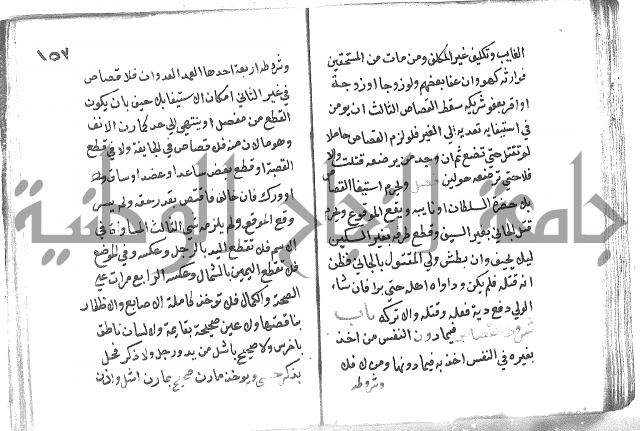 الغايب وتكليف غير المكلف ومن مات من المستحقين
فوارثه كهو وان عفا بعضهم ولو زوجا او زوجة
او اقر بعفو شريكه سقط القصاص الثالث ان يومن
في استيفايه تعديه الى الغير فلو لزم القصاص حاملا
لم تقتل حتى تضع ثم ان وجد من يرضعه قتلت والا
فلا حتى ترضعه حولين فصل ويحرم استيفا القصاص
بلا حضرة السلطان او نايبه ويقع الموقع ويحرم
قتل الجاني بغير السيف وقطع طرفه بغير السكين
ليلا يحيف وان بطش ولي المقتول بالجاني فظن
انه قتله فلم يكن وداواه اهله حتى برا فان شاء
الولي دفع دية فعله وقتله والا تركه باب
القصاص فيما دون النفس من اخذ
بغيره في النفس اخذ به فيما دونها ومن لا فلا
وشروطه
١٥٧
وشروطه اربعة احدها العمد العدوان فلا قصاص
في غيره الثاني امكان الاستيفا بلا حيف بان يكون
القطع من مفصل او ينتهي الى حد كمارن الانف
وهو ما لان منه فلا قصاص في جايفة ولا في قطع
القصبة او قطع بعض ساعد او عضد او ساق
او ورك فان خالف فاقتص بقدر حقه ولم يسر
وقع الموقع ولم يلزمه شي الثالث المساواة في
الاسم فلا تقطع اليد بالرجل وعكسه وفي الموضع
فلا تقطع اليمين بالشمال وعكسه الرابع مراعاة
الصحة والكمال فلا توخذ كاملة الاصابع والاظفار
بناقصتها ولا عين صحيحة بقايمة ولا لسان ناطق
باخرس ولا صحيح باشل من يد ورجل وذكر ولا ذكر فحل
بذكر خصي ويوخذ مارن صحيح بمارن اشل واذن
جامعة النجاح الوطنية